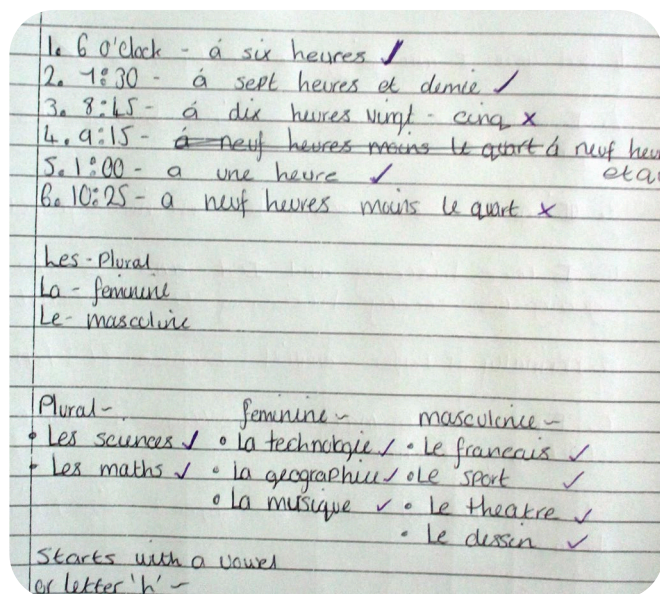 1. 6 O'clock - á six heures ✓
2. 7:30 - á sept heures et demie ✓
3. 8:45 - á dix heures vingt - cinq x
4. 9:15 - á neuf heures moins le quart á neuf heu
et qu
5. 1:00 - a une heure ✓
6. 10:25 - a neuf heures moins le quart x
Les - Plural
La - feminine
Le - masculine
Plural - feminine - masculinie -
• Les sciences ✓ • La technologie ✓ • Le francais ✓
• Les maths ✓ • La geographie ✓ • Le sport ✓
• La musique ✓ • Le theatre ✓
• Le dessin ✓
Starts with a vowel
or letter 'h' -